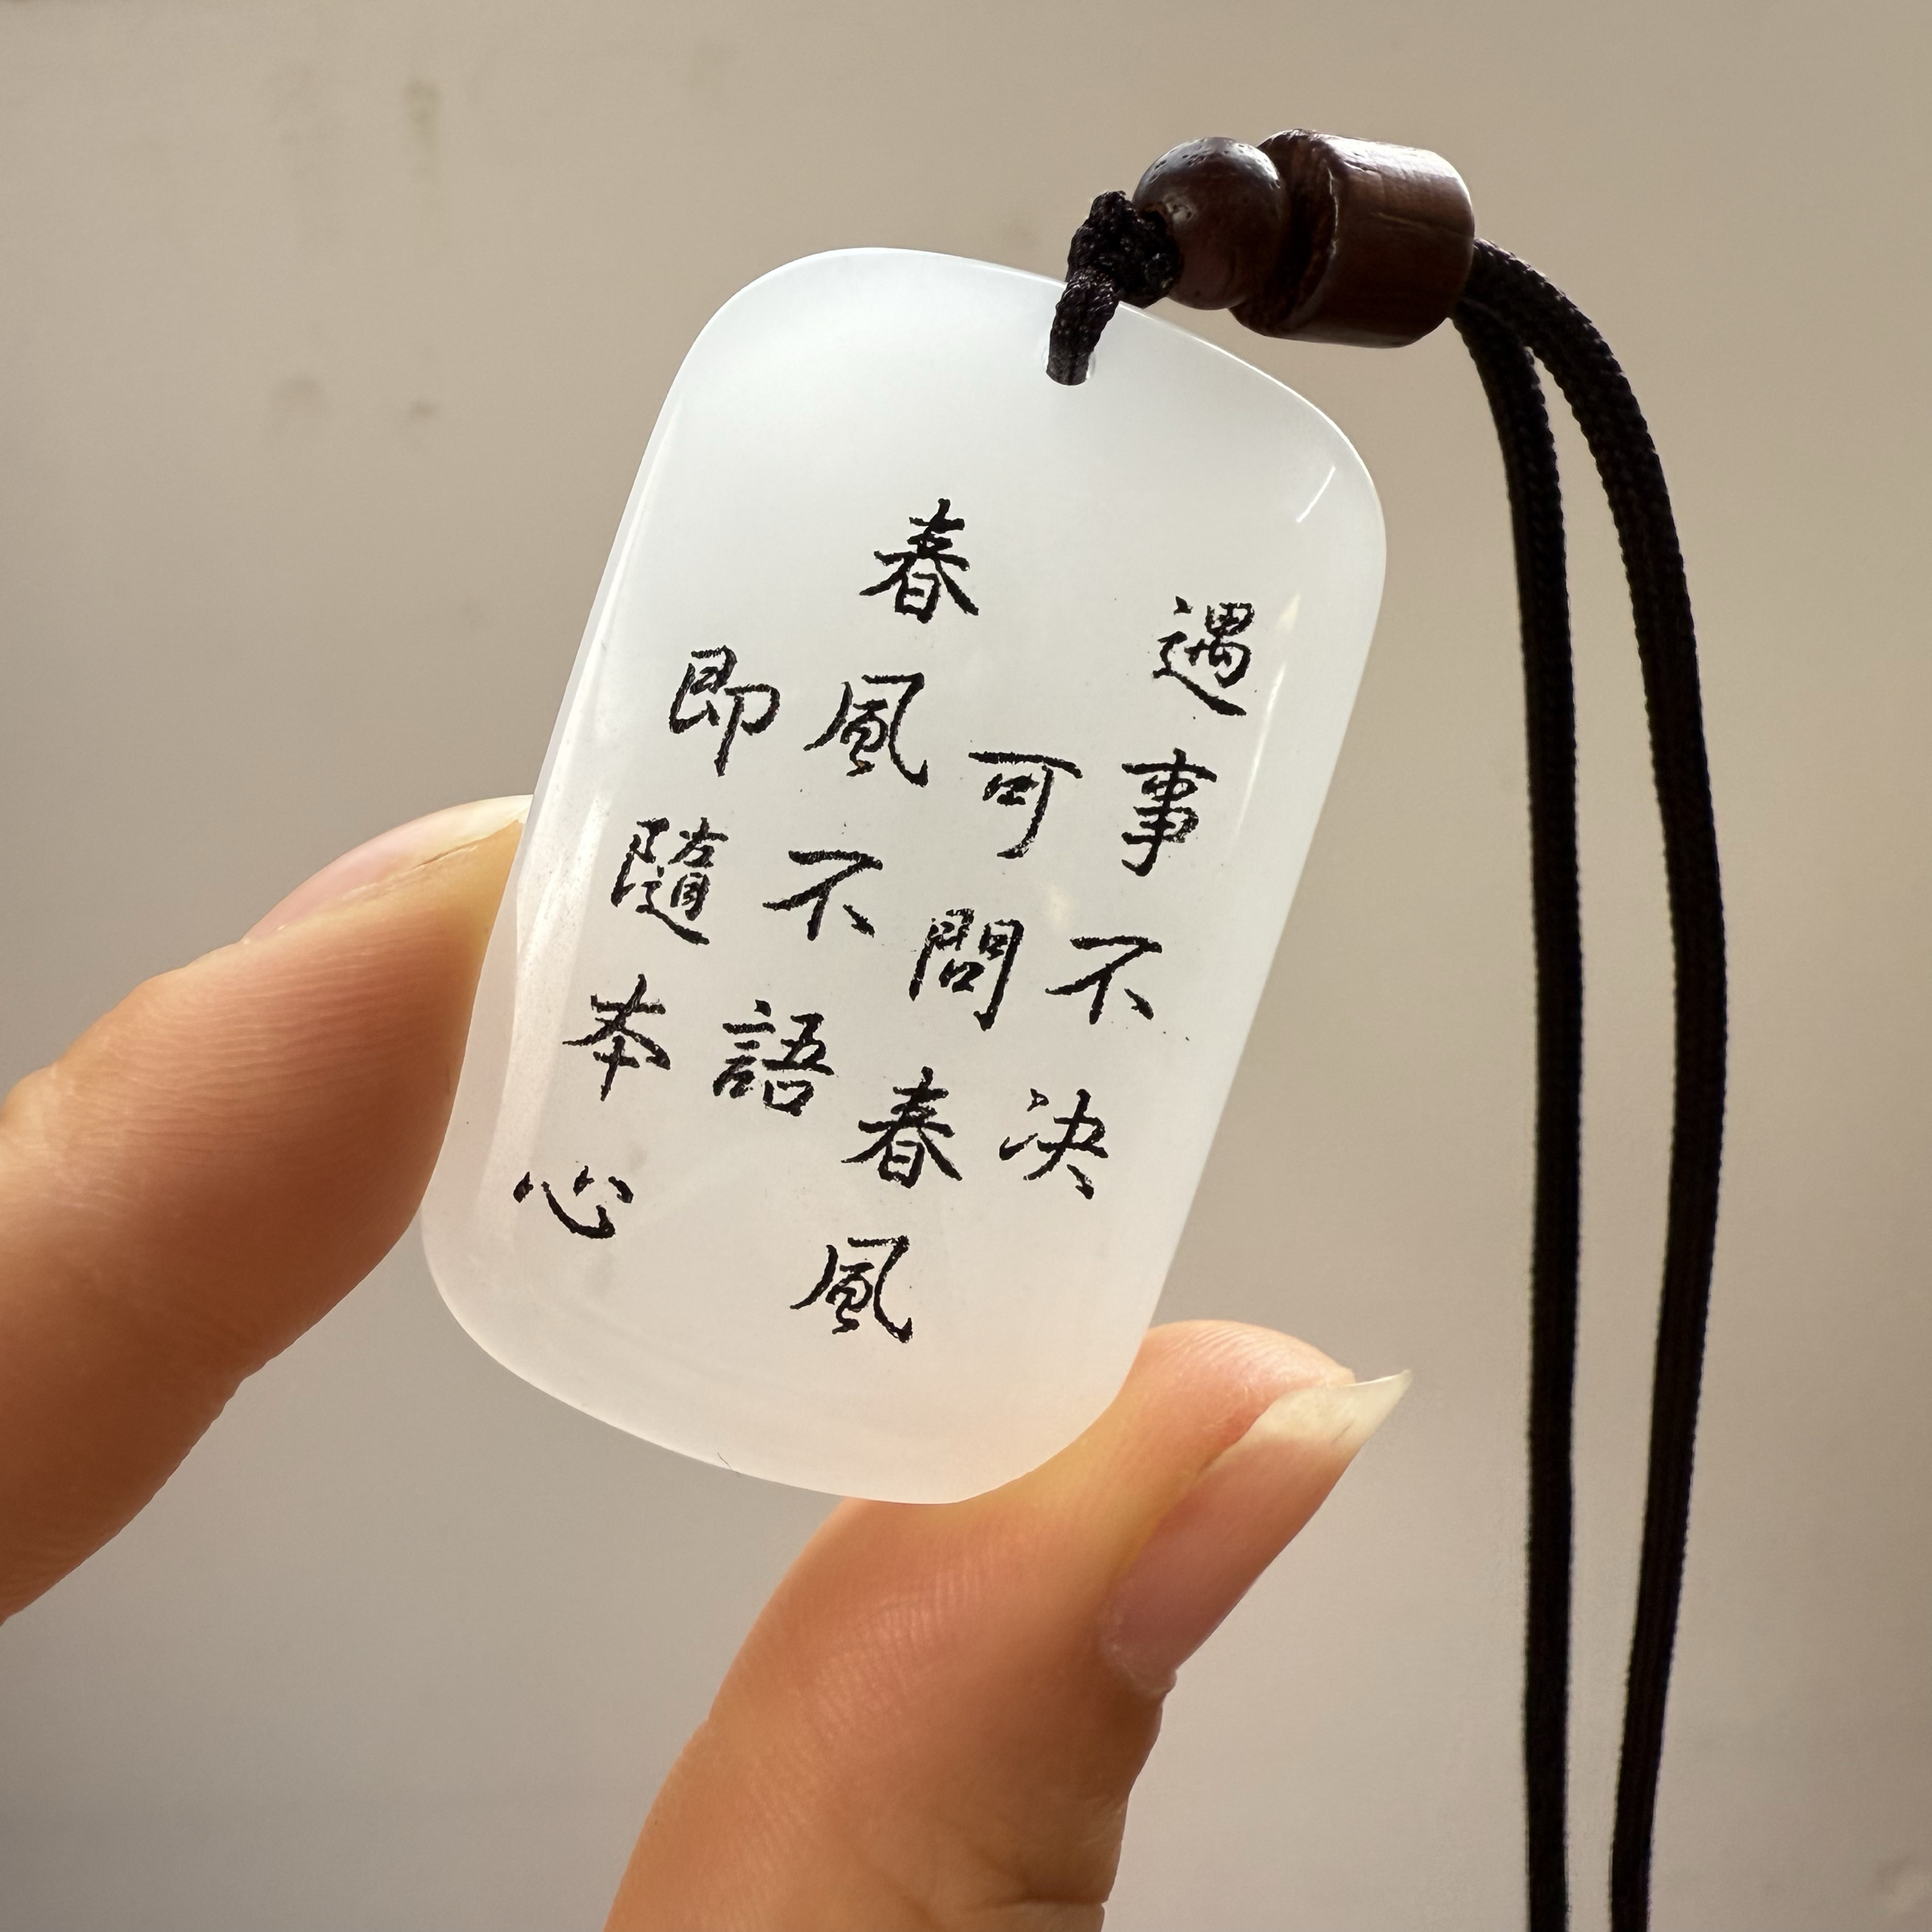 遇事不決
可問春風
春風不語
即隨本心